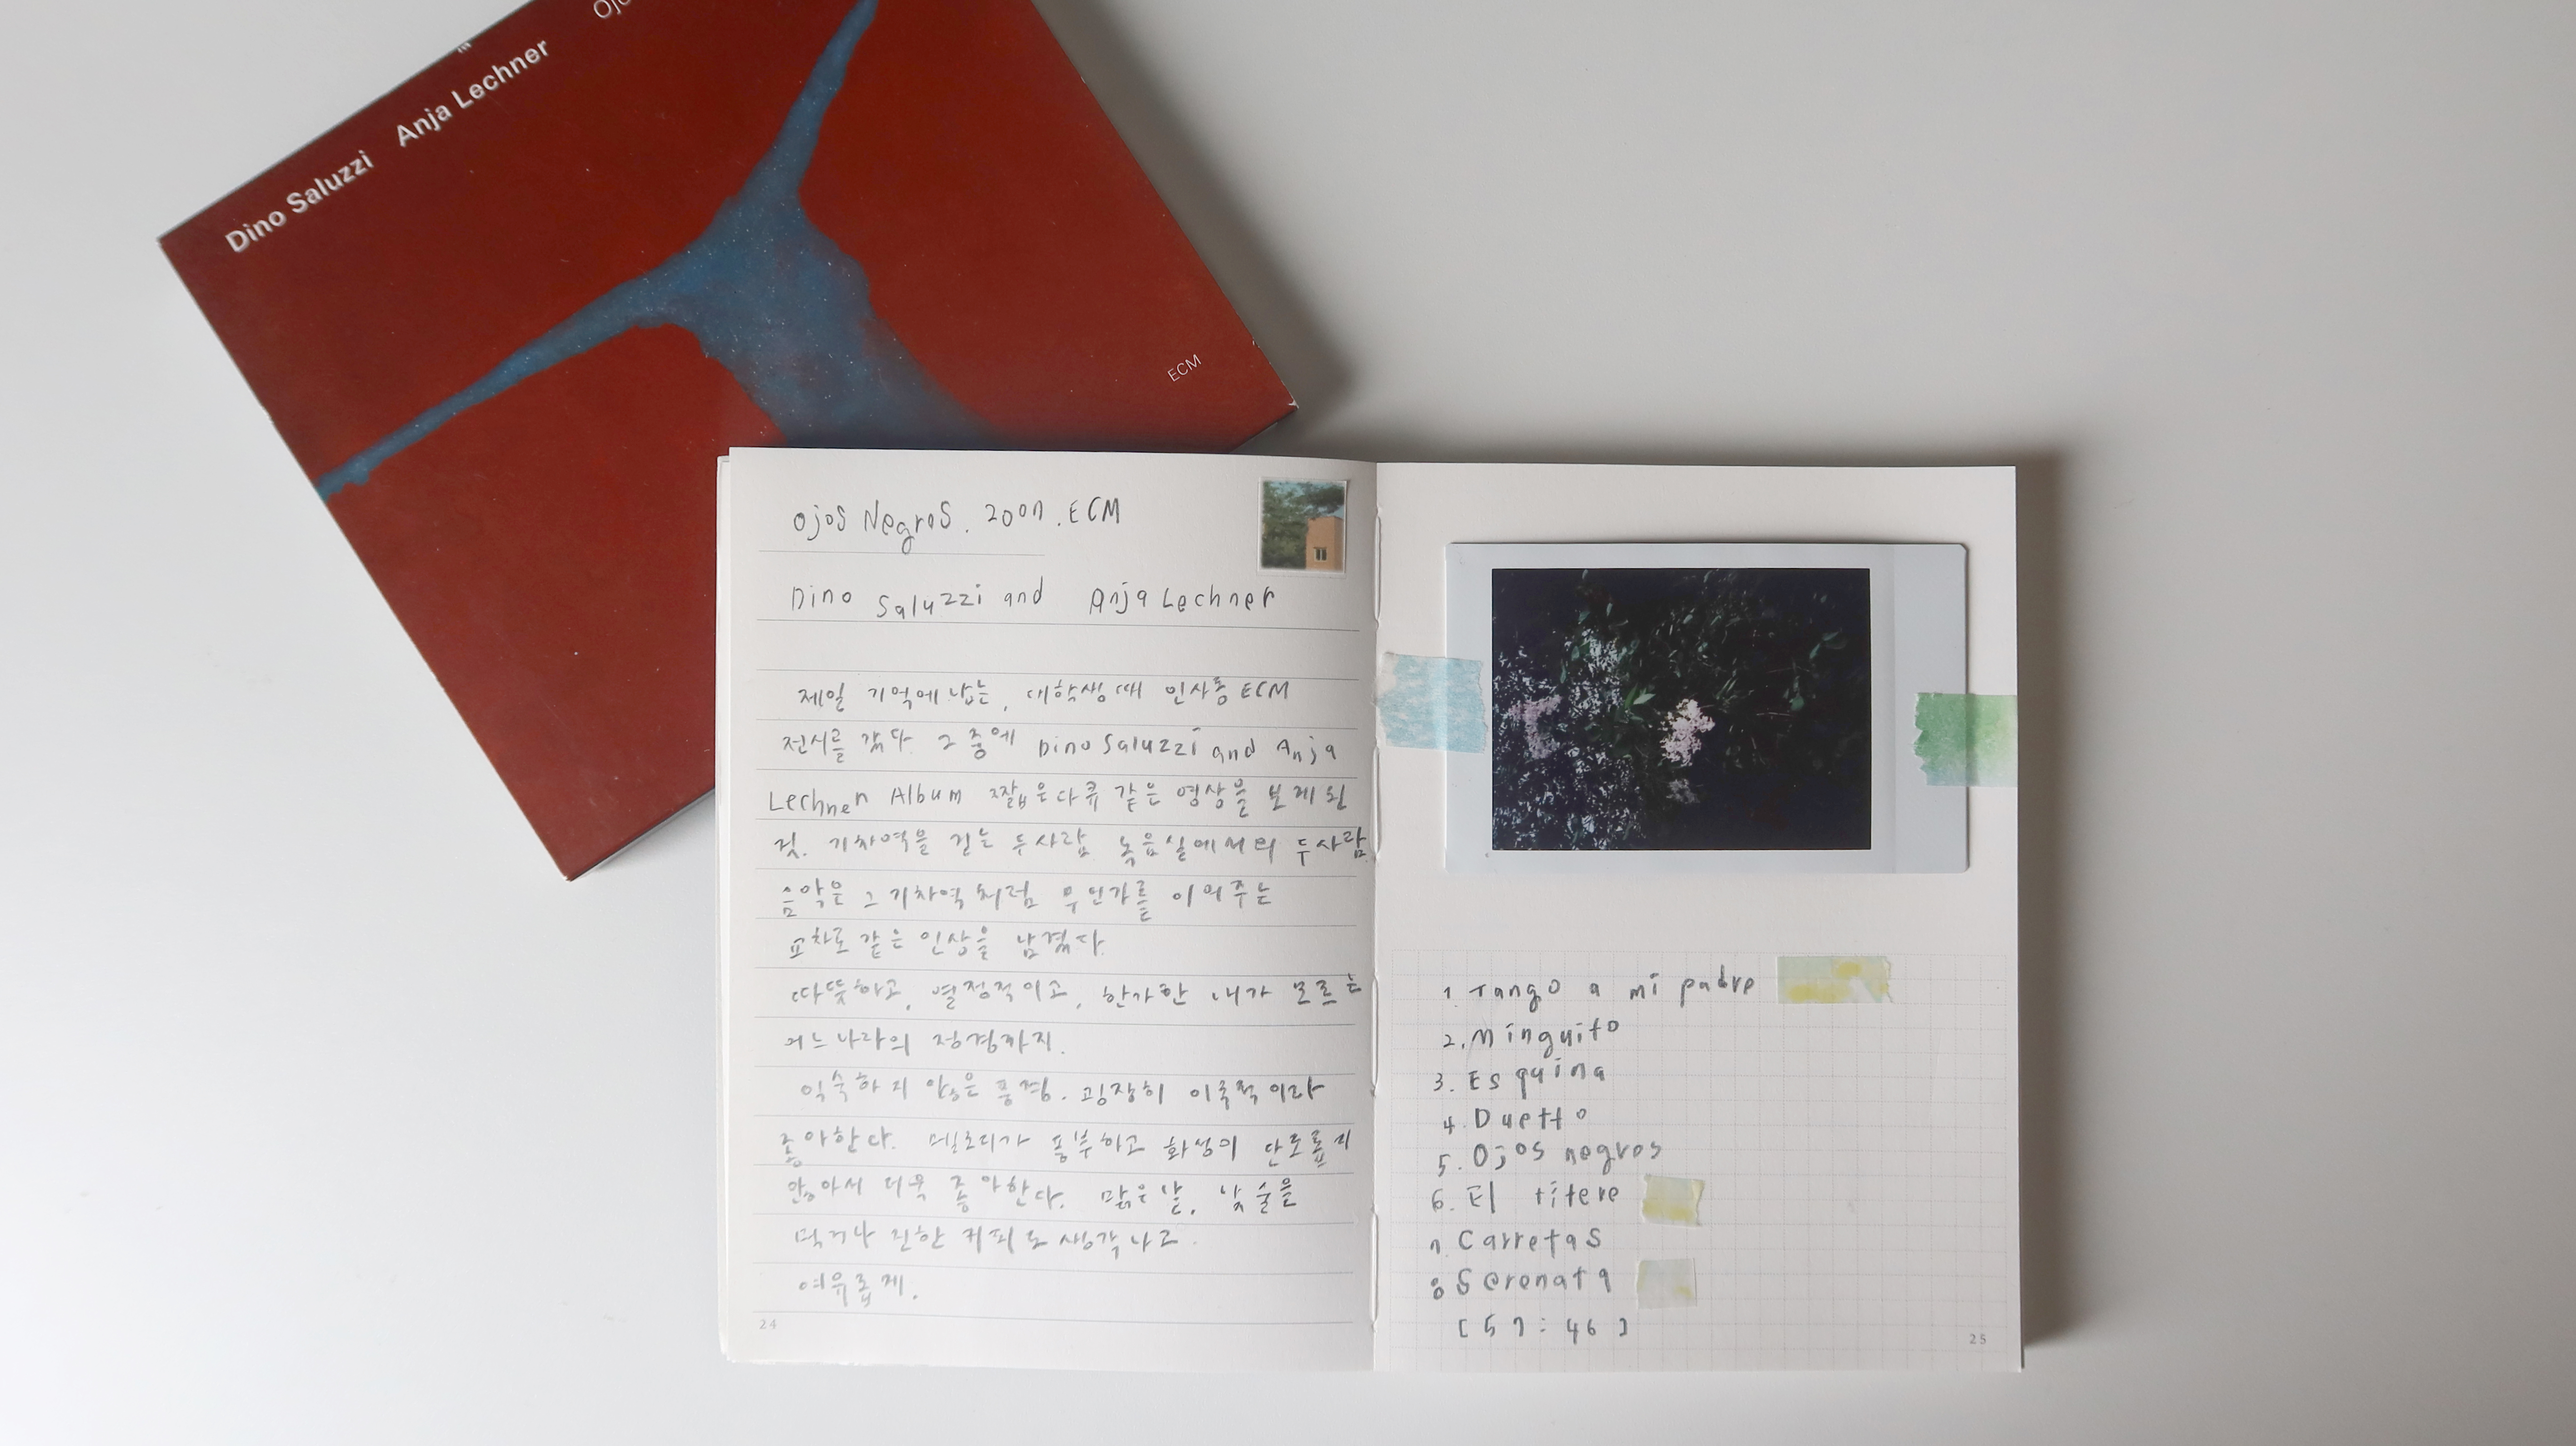 Dino Saluzzi Anja Lechner Ojo
ECM
Ojos Negros. 2007. ECM
Dino Saluzzi and Anja Lechner
제일 기억에 남는, 대학생 때 인사동 ECM
전시를 갔다. 그 중에 Dino Saluzzi and Anja
Lechner Album 짧은 다큐 같은 영상을 보게 된
것. 기차역을 걷는 두사람 녹음실에서의 두사람
음악은 그 기차역처럼 무언가를 이어주는
교차로 같은 인상을 남겼다.
따뜻하고, 열정적이고, 한가한 내가 모르는
어느 나라의 정경까지.
익숙하지 않은 풍경. 굉장히 이국적이라
좋아한다. 멜로디가 풍부하고 화성이 단조롭지
않아서 더욱 좋아한다. 맑은 날, 낮술을
먹거나 진한 커피도 생각나고.
여유롭게.
24
1. Tango a mi padre
2. Minguito
3. Esquina
4. Duetto
5. Ojos negros
6. El titere
7 Carretas
8 Serenata
[57:46]
25